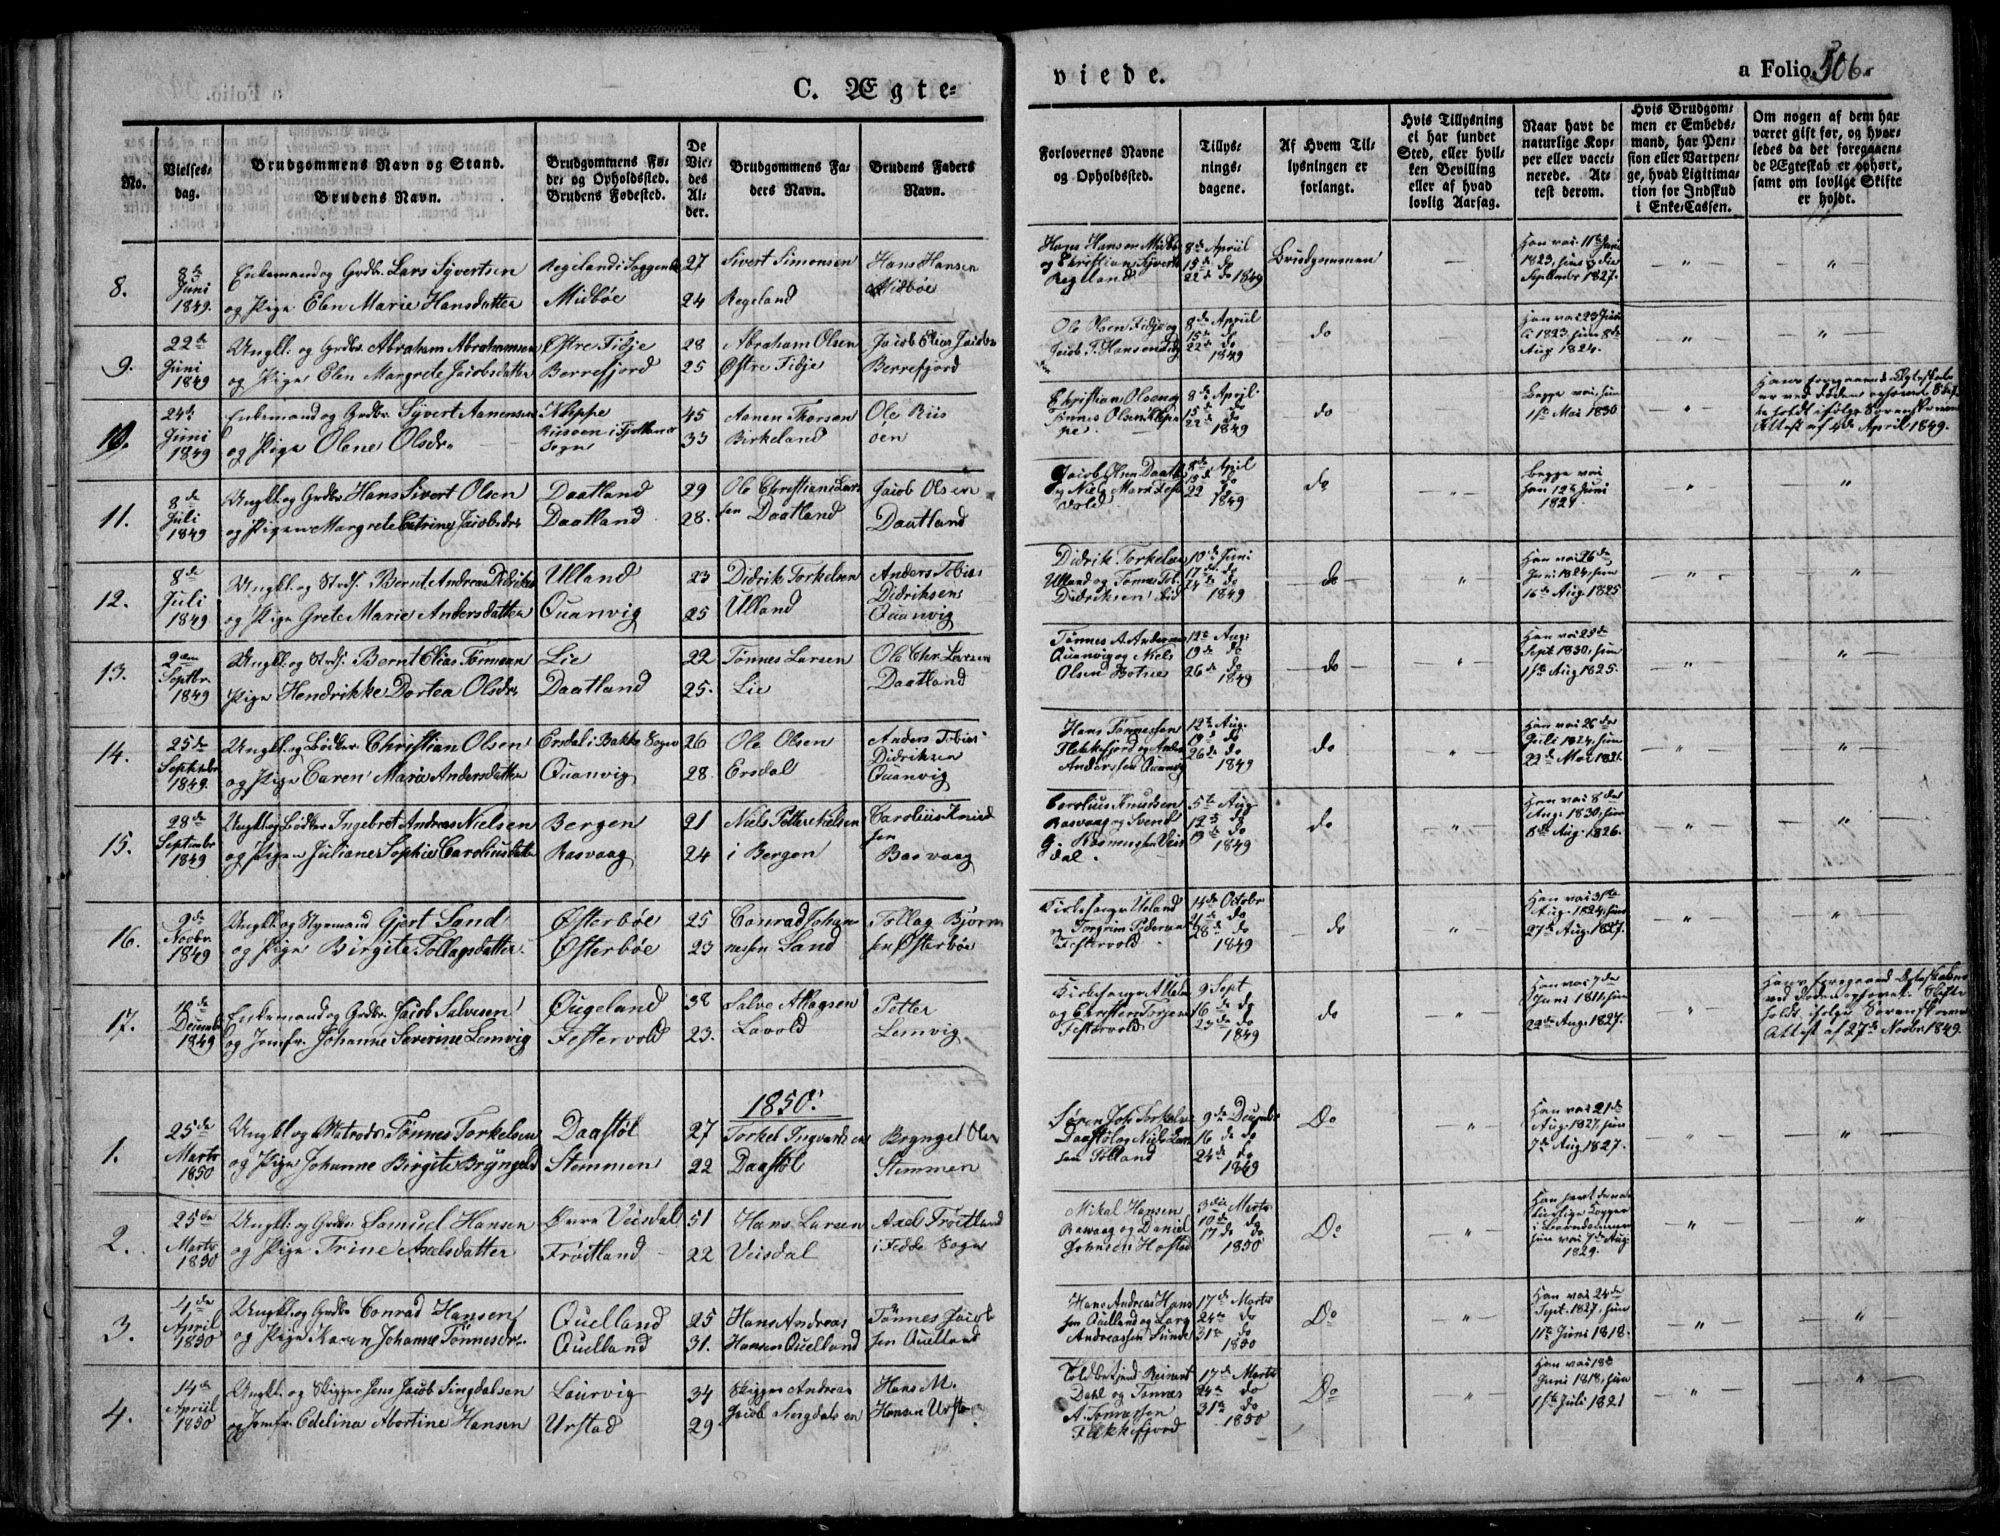 C. Ægte-
viede.
a Folio 506.
No.
Vielses-
dag.
Brudgommens Navn og Stand.
Brudens Navn.
Brudgommens Fø-
de- og Opholdssted.
Brudens Fødested.
De
Vie-
des
Al-
der.
Brudgommens Fa-
ders Navn.
Brudens Faders
Navn.
Forlovernes Navne
og Opholdssted.
Tillys-
nings-
dagene.
Af Hvem Til-
lysningen er
forlangt.
Hvis Tillysning
ei har fundet
Sted, eller hvil-
ken Bevilling
eller af hvad
lovlig Aarsag.
Naar havt de
naturlige Kop-
per eller vacci-
nerede. At-
test derom.
Hvis Brudgom-
men er Embeds-
mand, har Pen-
sion eller Vartpen-
ge, hvad Ligitima-
tion for Indskud
i Enke-Cassen.
Om nogen af dem har
været gift før, og hvor-
ledes da det foregaaen-
de Ægteskab er ophørt,
samt om lovligt Skifte
er holdt.
8.
8de
Juni
1849.
Enkemand og Grdbr. Lars Syvertsen
og Pige Elen Marie Hansdatter
Regeland i Soggend
Midbøe
27
24
Sivert Simonsen
Regeland
Hans Hansen
Midbøe
Hans Hansen Midbø
og Christian Syverts
Regeland
8de April
15de do
22de do 1849
Brudgommen
Han vac. 11te Juni
1823, hun 3die
Septembr 1827.
9.
22de
Juni
1849
Ungkl. og Grdbr. Abraham Abrahamsen
og Pige Elen Margrete Jacobsdatter
Østre Fidje
Berrefjord
28
25
Abraham Olsen
Østre Fidje
Jacob Elias Jacobs
Berrefjord
Ole Olsen Fidje og
Jacob F. Hansen
8de April
15de do
22de do
1849
do
Han vac. 23 Juni
1823, hun 8de
Aug 1824.
10.
24de
Juni
1849
Enkemand og Grdbr. Syvert Aanensen
og Pige Olene Olsdr
Kleppe
Riisøen i Fjotlands
Sogn
45
33
Aanen Thorsen
Birkeland
Ole Riis
øen
Christian Olsen og
Tønnes Olsen Klep
pe.
8de April.
15de do
22de do
1849
do
Begge vac., hun
1ste Mai 1830
Hans foregaaende Ægteskab
er ved Døden ophørt. Skif
te holdt ifølge Sorenskriverens
Attest af 4de April 1849.
11.
8de
Juli
1849
Ungkl. og Grdbr. Hans Sivert Olsen
og Pigen Margrete Catrine Jacobsdr
Daatland
Daatland
29
28.
Ole Christian Lars
sen Daatland
Jacob Olsen
Daatland
Jacob Olsen Daatl
og Niels Mars Fest
vold
8de April
15de do
22 do
1849
do
Begge vac
han 12te Juni
1824.
12.
8de
Juli
1849
Ungkl. og Strds. Bernt Andreas Didriks
og Pige Grete Marie Andersdatter
Ulland
Quanvig
23
25
Didrik Torkelsen
Ulland
Anders Tobias
Didriksen
Quanvig
Didrik Torkelsen
Ulland og Tønnes Tob.
Didriksen Lid
10de Juni
17de do
24de do
1849
do
Han vac. 26de
Juni 1824, hun
16de Aug. 1825
13.
2den
Septbr.
1849
Ungkl. og Strds. Bernt Elias Tønnesen
Pige Hendrikke Dortea Olsdr
Lie
Daatland
22
25.
Tønnes Larsen
Lie
Ole Chr. Larsen
Daatland
Tønnes A. Andersen
Quanvig og Niels
Olsen Botne
12te Aug.
19de do
26de do
1849
do
Han vac. 25de
Sept 1830, hun
1ste Aug 1825.
14.
25de
Septembr
1849.
Ungkl. og Bødker Christian Olsen
og Pige Caren Maria Andersdatter
Ersdal i Bakke Sogn
Quanvig
26
28.
Ole Olsen
Ersdal
Anders Tobias
Didriksen
Quanvig
Hans Tønnessen
Flekkefjord og Anders
Anderssen Quanvig
12te Aug.
19de do
26de do
1849
do
Han vac. 26de
Juli 1824, hun
22de Mai 1821.
15.
28de
Septembr
1849
Ungkl. og Bødker Ingebret Andreas Nielsen
og Pigen Juliane Sophie Caroliusdatter
Bergen
Rasvaag
21
24
Niels Petter Nielsen
i Bergen
Carolius Knud
sen
Rasvaag
Carolius Knudsen
Rasvaag og Svend
G. Rasmussen Veis
dal.
5te Aug
12te do
19de do
1849
do
Han vac. 8de
Aug. 1830, hun
8de Aug. 1826.
16.
9de
Novbr.
1849
Ungkl. og Styrmand Gjert Sand
og Pige Birgite Tollagsdatter
Østerbøe
Østerbøe
25
23
Conrad Johan
nessen Sand
Tollag Bjørn
sen Østerbøe
Kirkesanger Ueland
og Torgrim Pedersen
Festervold
14de Octobr
21de do
28de do
1849
do
Han vac. 31te
Aug. 1824, hun
27de Aug. 1827.
17.
18de
Decembr
1849
Enkemand og Grdbr. Jacob Salvesen
og Jomfr. Johanne Severine Lemvig
Øugeland
Festervold
38
23.
Salve Atlagsen
Lavold
Petter
Lemvig
Kirkesanger Uelan
og Christen Torjers
Festervold
9 Sept
16de do
23de do
1849
do
Han vac. 7de
Juni 1811, hun
22de Aug. 1827.
Hans foregaaende Ægteskab er
ved Døden ophørt. Skifte
holdt ifølge Sorenskriver
Attest af 27de Novbr 1849.
1850.
1.
25de
Marts
1850
Ungkl. og Matros Tønnes Torkelsen
og Pige Johanne Birgite Bryngels
Daastøl
Stemmen
27
22
Torkel Ingvartsen
Daastøl
Brynget Olsen
Stemmen
Søren Joh. Torkels
Daastøl og Niels Lar
sen Tolland
9de Decembr
16 de do
24de do
1849
Do
Han vac. 21de
Aug. 1827, hun
7de Aug 1827.
2.
25de
Marts
1850
Ungkl. og Grdbr. Samuel Hansen
og Pige Trine Axelsdatter
Øvre Veisdal
Frøitland
51
22
Hans Larsen
Veisdal
Axel Frøitland
i Fedde Sogn
Mikal Hansen
Rasvaag og Daniel
Johnsen Hofstad
3die Marts
10de do
17de do
1850
Do
Han havt de na
turlige Kopper
i Barndommen
hun vac 7de Aug.
1829.
3.
4de
April
1850
Ungkl. og Grdbr. Conrad Hansen
og Pige Karen Johanne Tønnesdr.
Quelland
Quelland
25
31.
Hans Andreas
Hansen Quelland
Tönnes Jacob
sen Quelland
Hans Andreas Hans
sen Quelland og Lars
Andreassen Sunde
17de Marts
24de do
31te do
1850
Do
Han vac 24de
Sept. 1827, hun
11te Juni 1818.
4.
14de
April
1850
Ungkl. og Skipper Jens Jacob Singdalsen
og Jomfr. Edelina Abortine Hansen
Laurvig
Urstad
34
29
Skipper Andreas
Jacob Singdalsen
Hans M.
Hansen Urstad
Toldbetjent Reinert
Dahl og Tønnes
A. Tønnessen
Flekkefjord
17de Marts
24de do
31te do
1850
Do
Han vac 18de
Juni 1818, hun
1ste Juli 1821